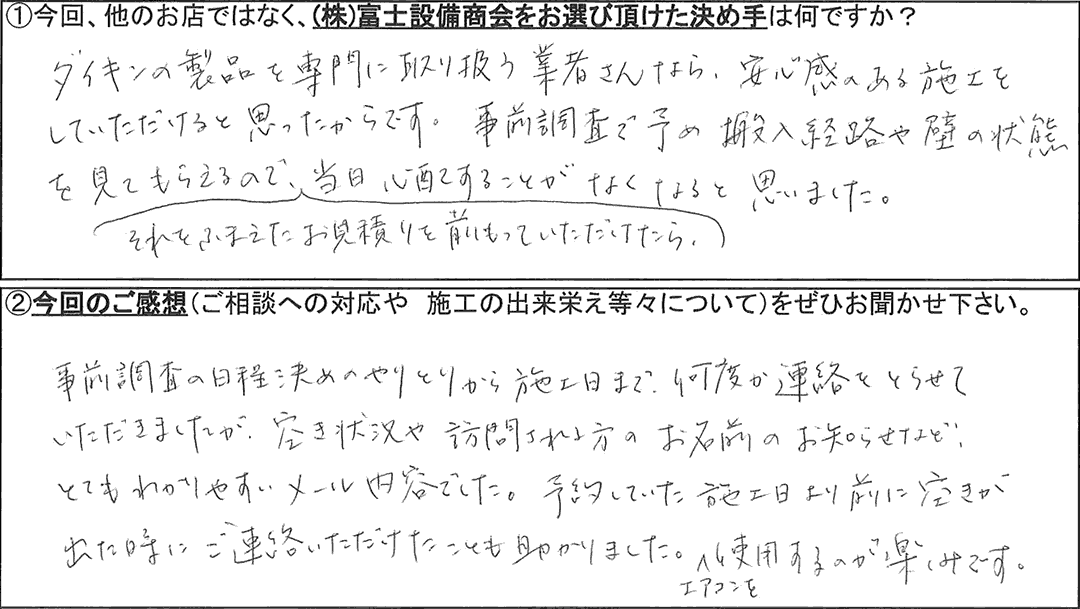 ①今回、他のお店ではなく、(株)富士設備商会をお選び頂けた決め手は何ですか?
ダイキンの製品を専門に取り扱う業者さんなら、安心感のある施工を
していただけると思ったからです。事前調査で予め搬入経路や壁の状態
を見てもらえるので、当日心配することがなくなると思いました。
それをふまえたお見積りを前もっていただけたら、
②今回のご感想(ご相談への対応や 施工の出来栄え等々について)をぜひお聞かせ下さい。
事前調査の日程決めのやりとりから施工日まで、何度か連絡をとらせて
いただきましたが、空き状況や訪問される方のお名前のお知らせなど、
とてもわかりやすいメール内容でした。予約していた施工日より前に空きが
出た時にご連絡いただけたことも助かりました。使用するのが楽しみです。
エアコンを